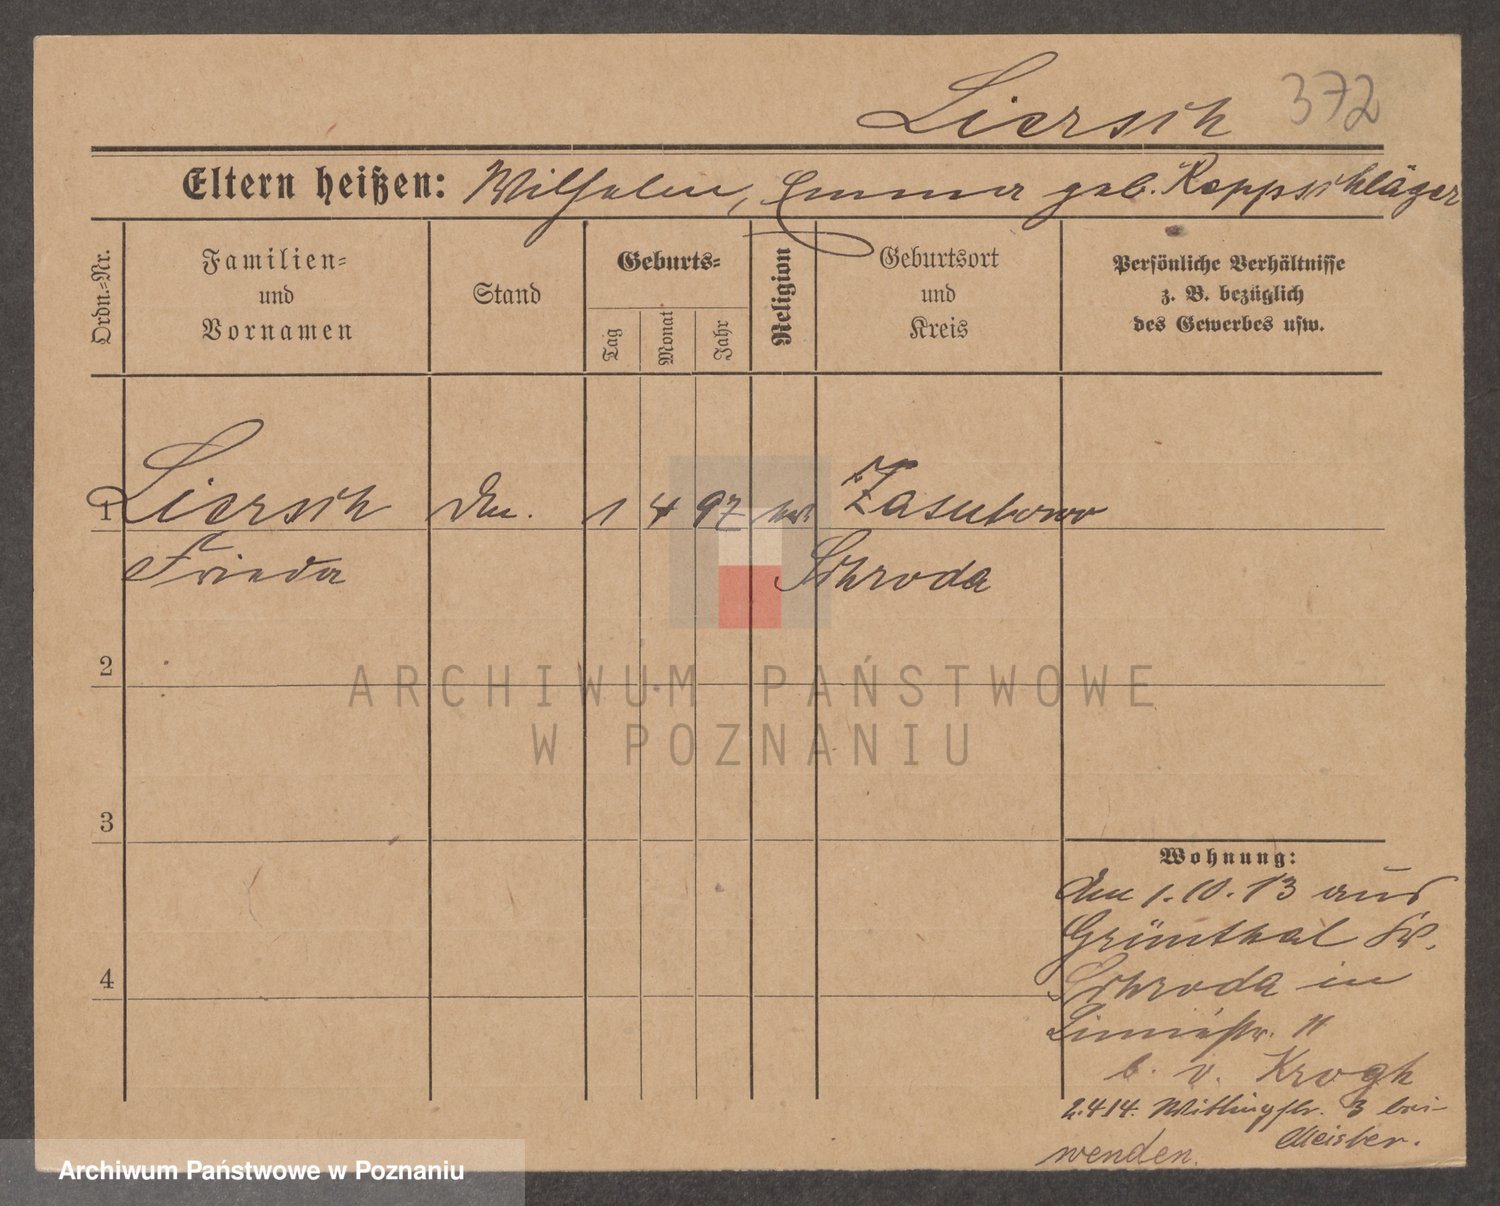 Liersch 372
Eltern heißen: Wilhelm, Emma geb. Reppschläger
Ordn.-Nr.
Familien-
und
Vornamen
Stand
Geburts-
Tag
Monat
Jahr
Religion
Geburtsort
und
Kreis
Persönliche Verhältnisse
z. B. bezüglich
des Gewerbes usw.
1 Liersch 1 4 97 Zasutowo
Frieda Schroda
2
3
4
Wohnung:
Am 1.10.13 aus
Grünthal Kr.
Schroda in
11
b. v. Krogh
2.4.14. Wittingstr. 3 bei
Meister.
wenden.
ARCHIWUM PAŃSTWOWE
W POZNANIU
Archiwum Państwowe w Poznaniu